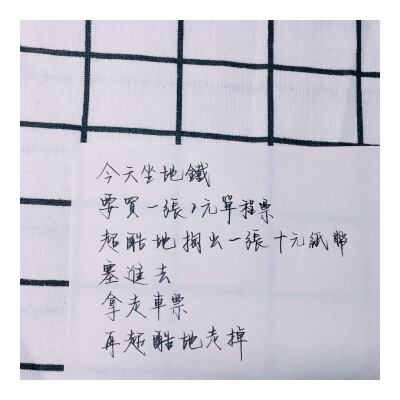 今天坐地鐵
要買一張2元單程票
超酷地掏出一張十元紙幣
塞進去
拿走車票
再超酷地走掉